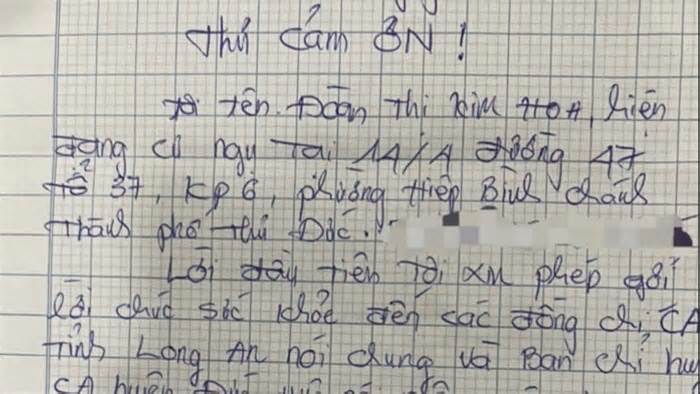 Thư cảm ƠN!
Tôi tên. Đoàn Thị Kim HOA, hiện
đang cư ngụ Tại 14/4 đường 47
tổ 37, Kp 6, phường Hiệp Bình chánh
Thành phố Thủ Đức.
Lời đầu tiên Tôi xin phép gởi
lời chúc sức khỏe đến các đồng chí, CA
Tỉnh Long An nói chung và Ban chỉ huy
CA huyện Đức